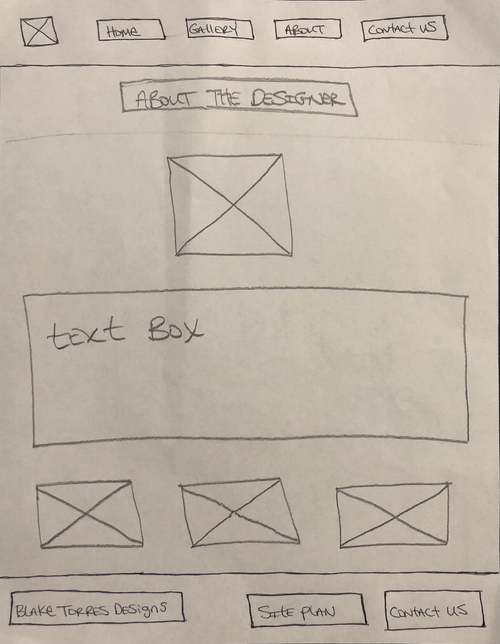 HOME
GALLERY
ABOUT
CONTACT US
ABOUT THE DESIGNER
text Box
BLAKE TORRES DESIGNS
SITE PLAN
CONTACT US